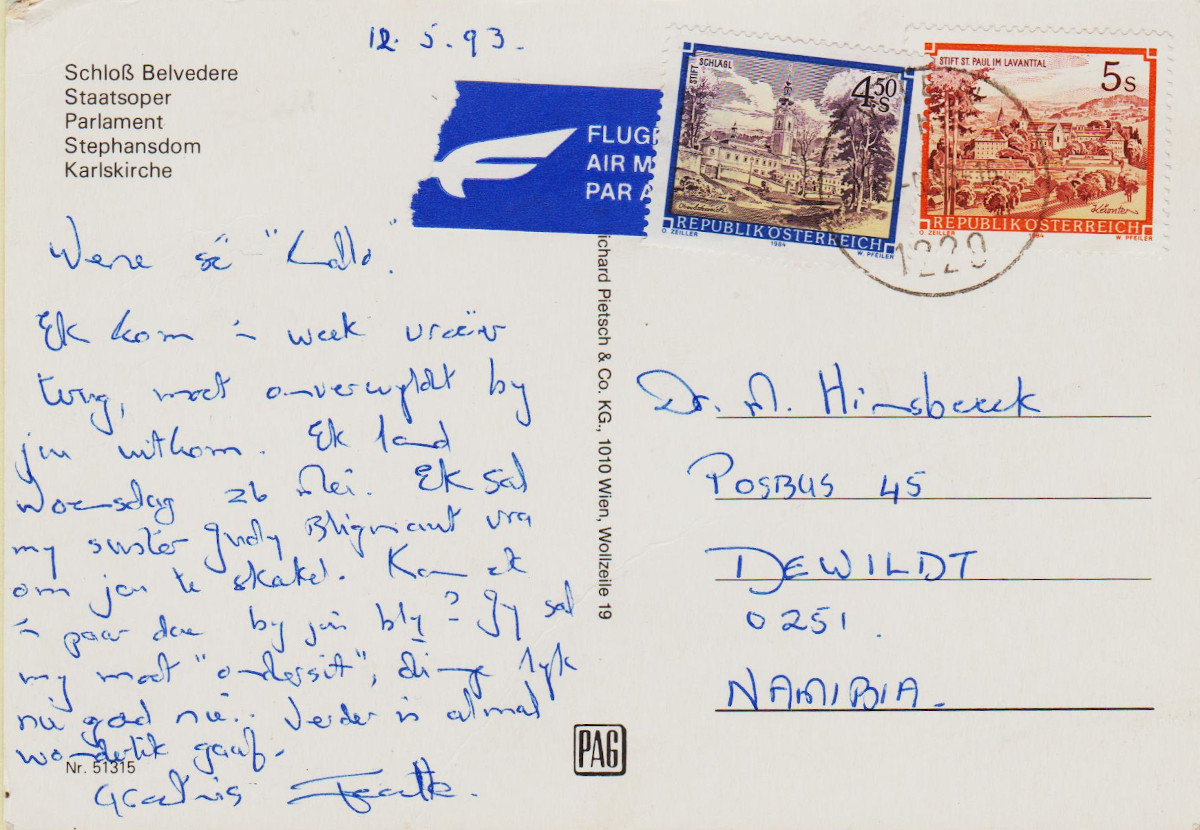 12.5.93.
Schloß Belvedere
Staatsoper
Parlament
Stephansdom
Karlskirche
FLUGP
AIR M
PAR A
STIFT SCHLÄGL
4.50 S
REPUBLIK ÖSTERREICH
O. ZEILLER 1984 W. PFEILER
STIFT ST. PAUL IM LAVANTTAL
5 S
REPUBLIK ÖSTERREICH
O. ZEILLER 1984 W. PFEILER
1220
Wene sê "Hallo."
Ek kom 'n week vroeër
terug, moet onverwyld by
jou uitkom. Ek land
Woensdag 26 Mei. Ek sal
my suster Judy Blignaut vra
om jou te skakel. Kan ek
'n paar dae by jou bly? Jy sal
my moet "ondersit", dinge lyk
nie goed nie.. Verder is almal
wonderlik gaaf.
Groetnis
Nr. 51315
ichard Pietsch & Co. KG., 1010 Wien, Wollzeile 19
PAG
Dr. A. Himsbeeck
POSBUS 45
DEWILDT
0251.
NAMIBIA.